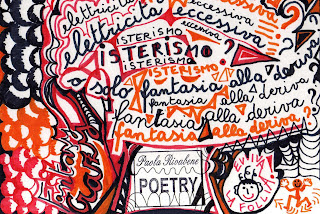 elettricità eccessiva
elettricità eccessiva
eccessiva
ISTERISMO
iSTERISMO?
iSTERISMO
ISTERISMO
o solo fantasia alla deriva?
fantasia alla deriva
fantasia alla deriva?
fantasia alla deriva?
Paola Rivabene
POETRY
VIVA
LA FOLLIA!